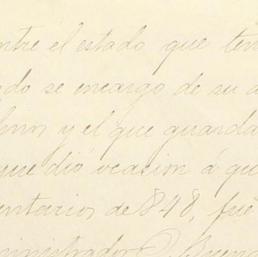 ntre el estado que ten
do se encargo de su a
y el que guarda
que dió ocasion á qu
entarios de 848, fue
ministrador D.